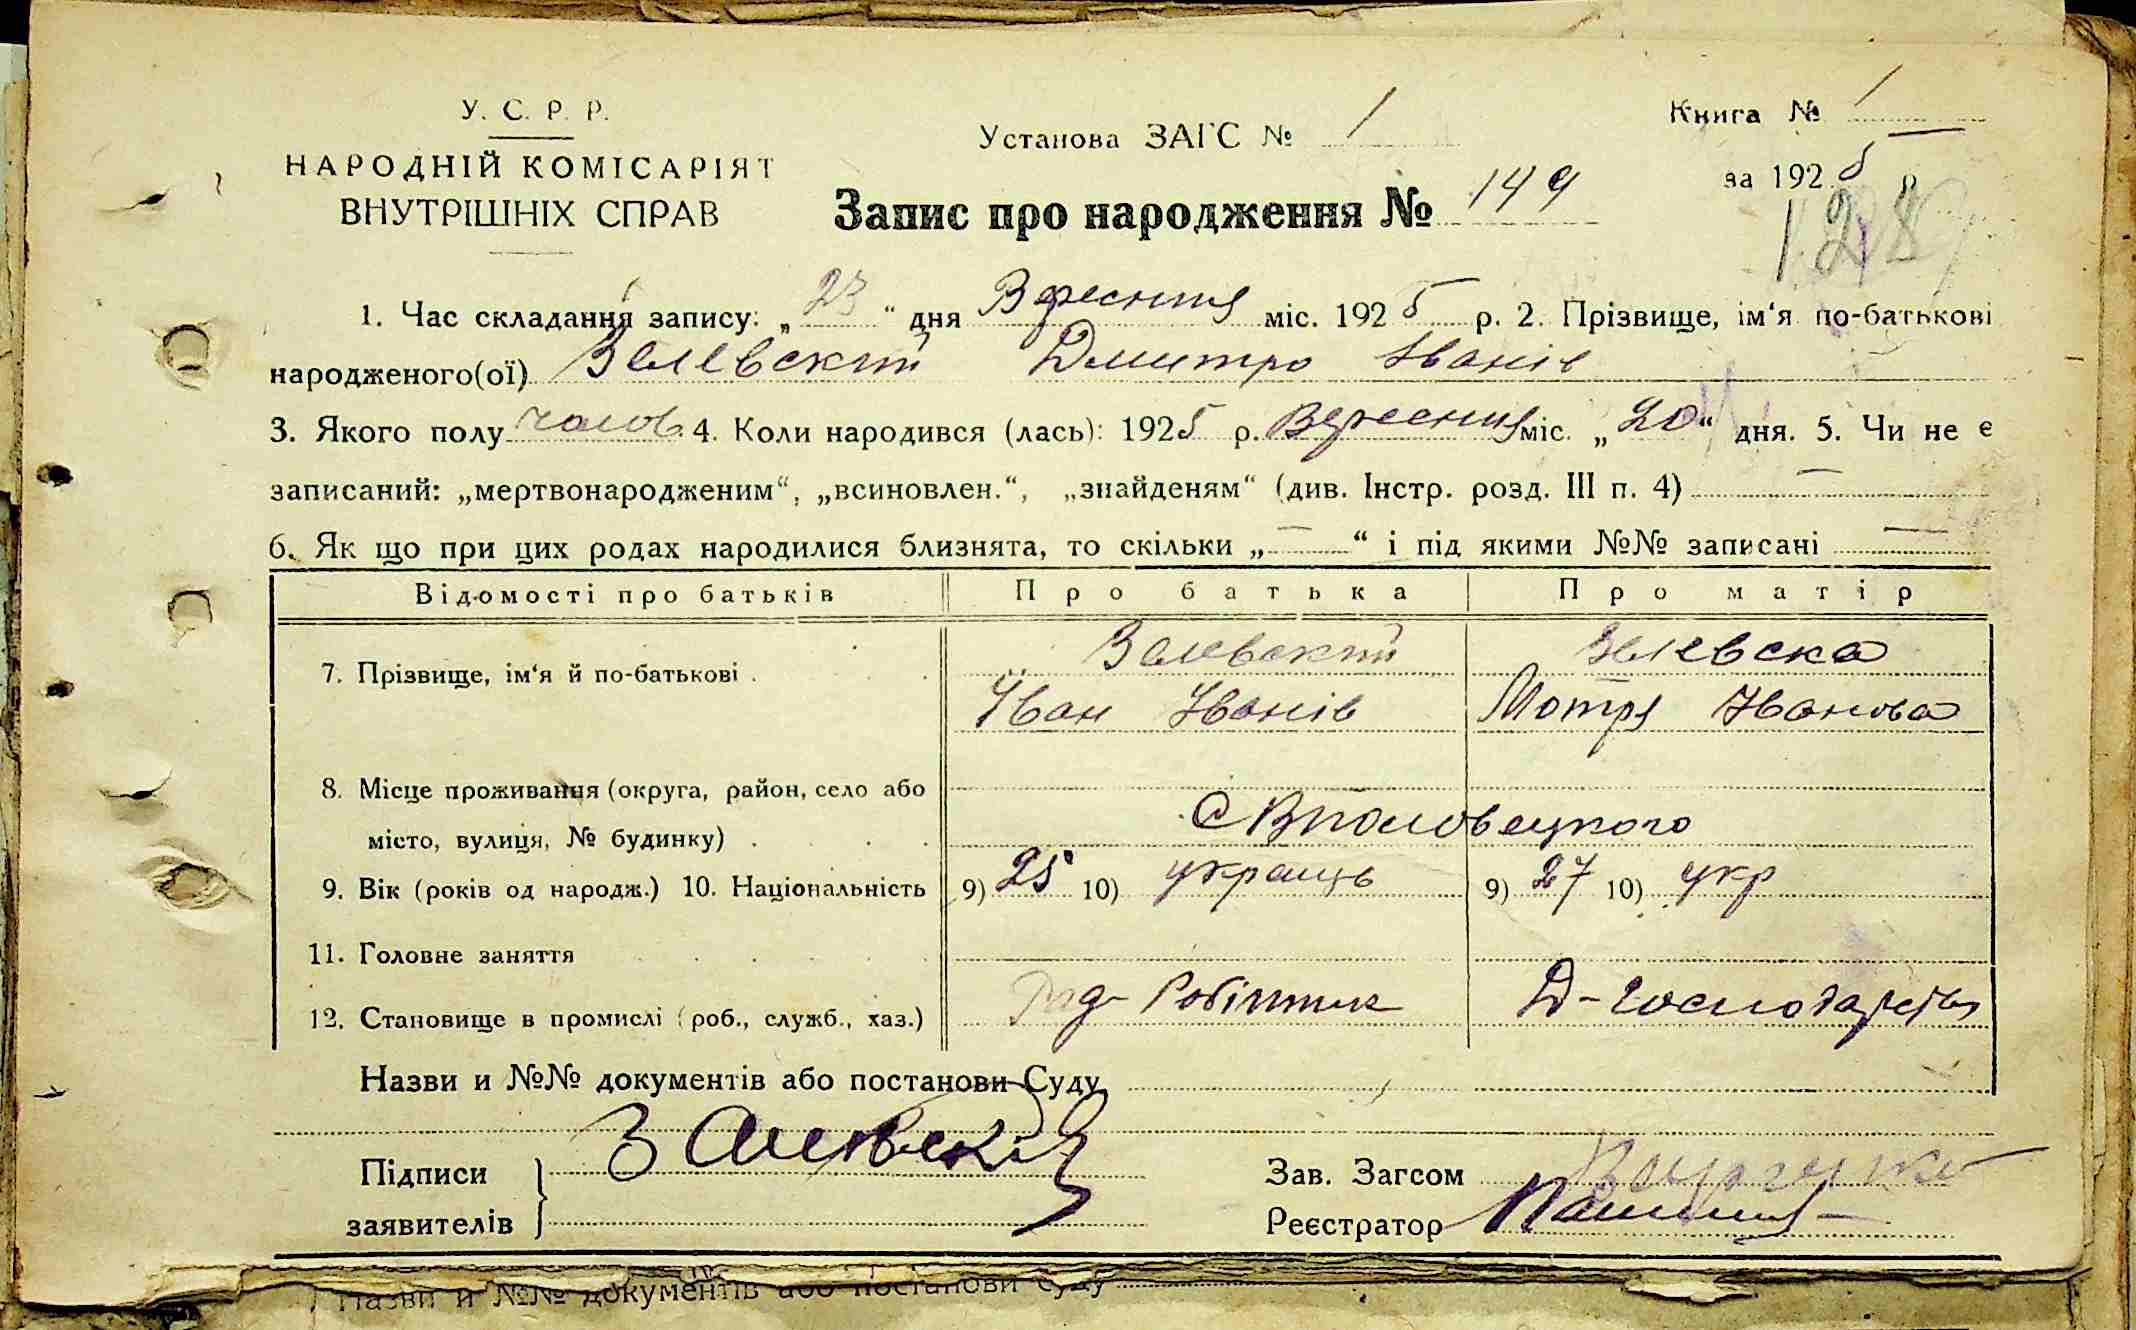 У. С. Р. Р.
НАРОДНІЙ КОМІСАРІЯТ
ВНУТРІШНІХ СПРАВ
Установа ЗАГС № 1
Книга № 1
за 1925 р.
Запис про народження № 149
1. Час складання запису: „23“ дня Вересния міс. 1925 р. 2. Прізвище, ім'я по-батькові
народженого(ої) Дмитро Іванів
3. Якого полу чолов. 4. Коли народився (лась): 1925 р. Вересния міс. „20“ дня. 5. Чи не є
записаний: „мертвонародженим“, „всиновлен.“, „знайденям“ (див. Інстр. розд. III п. 4) —
6. Як що при цих родах народилися близнята, то скільки „—“ і під якими №№ записані —
Відомості про батьків Про батька Про матір
7. Прізвище, ім'я й по-батькові .
Іван Іванів Мотря Іванова
8. Місце проживання (округа, район, село або
місто, вулиця, № будинку) . С
9. Вік (років од народж.) 10. Національність 9) 25 10) украиць 9) 27 10) укр
11. Головне заняття
12. Становище в промислі (роб., служб., хаз.) Робітник Д-
Назви и №№ документів або постанови Суду
Підписи
заявителів
Зав. Загсом
Реєстратор
Назви и №№ документів або постанови Суду